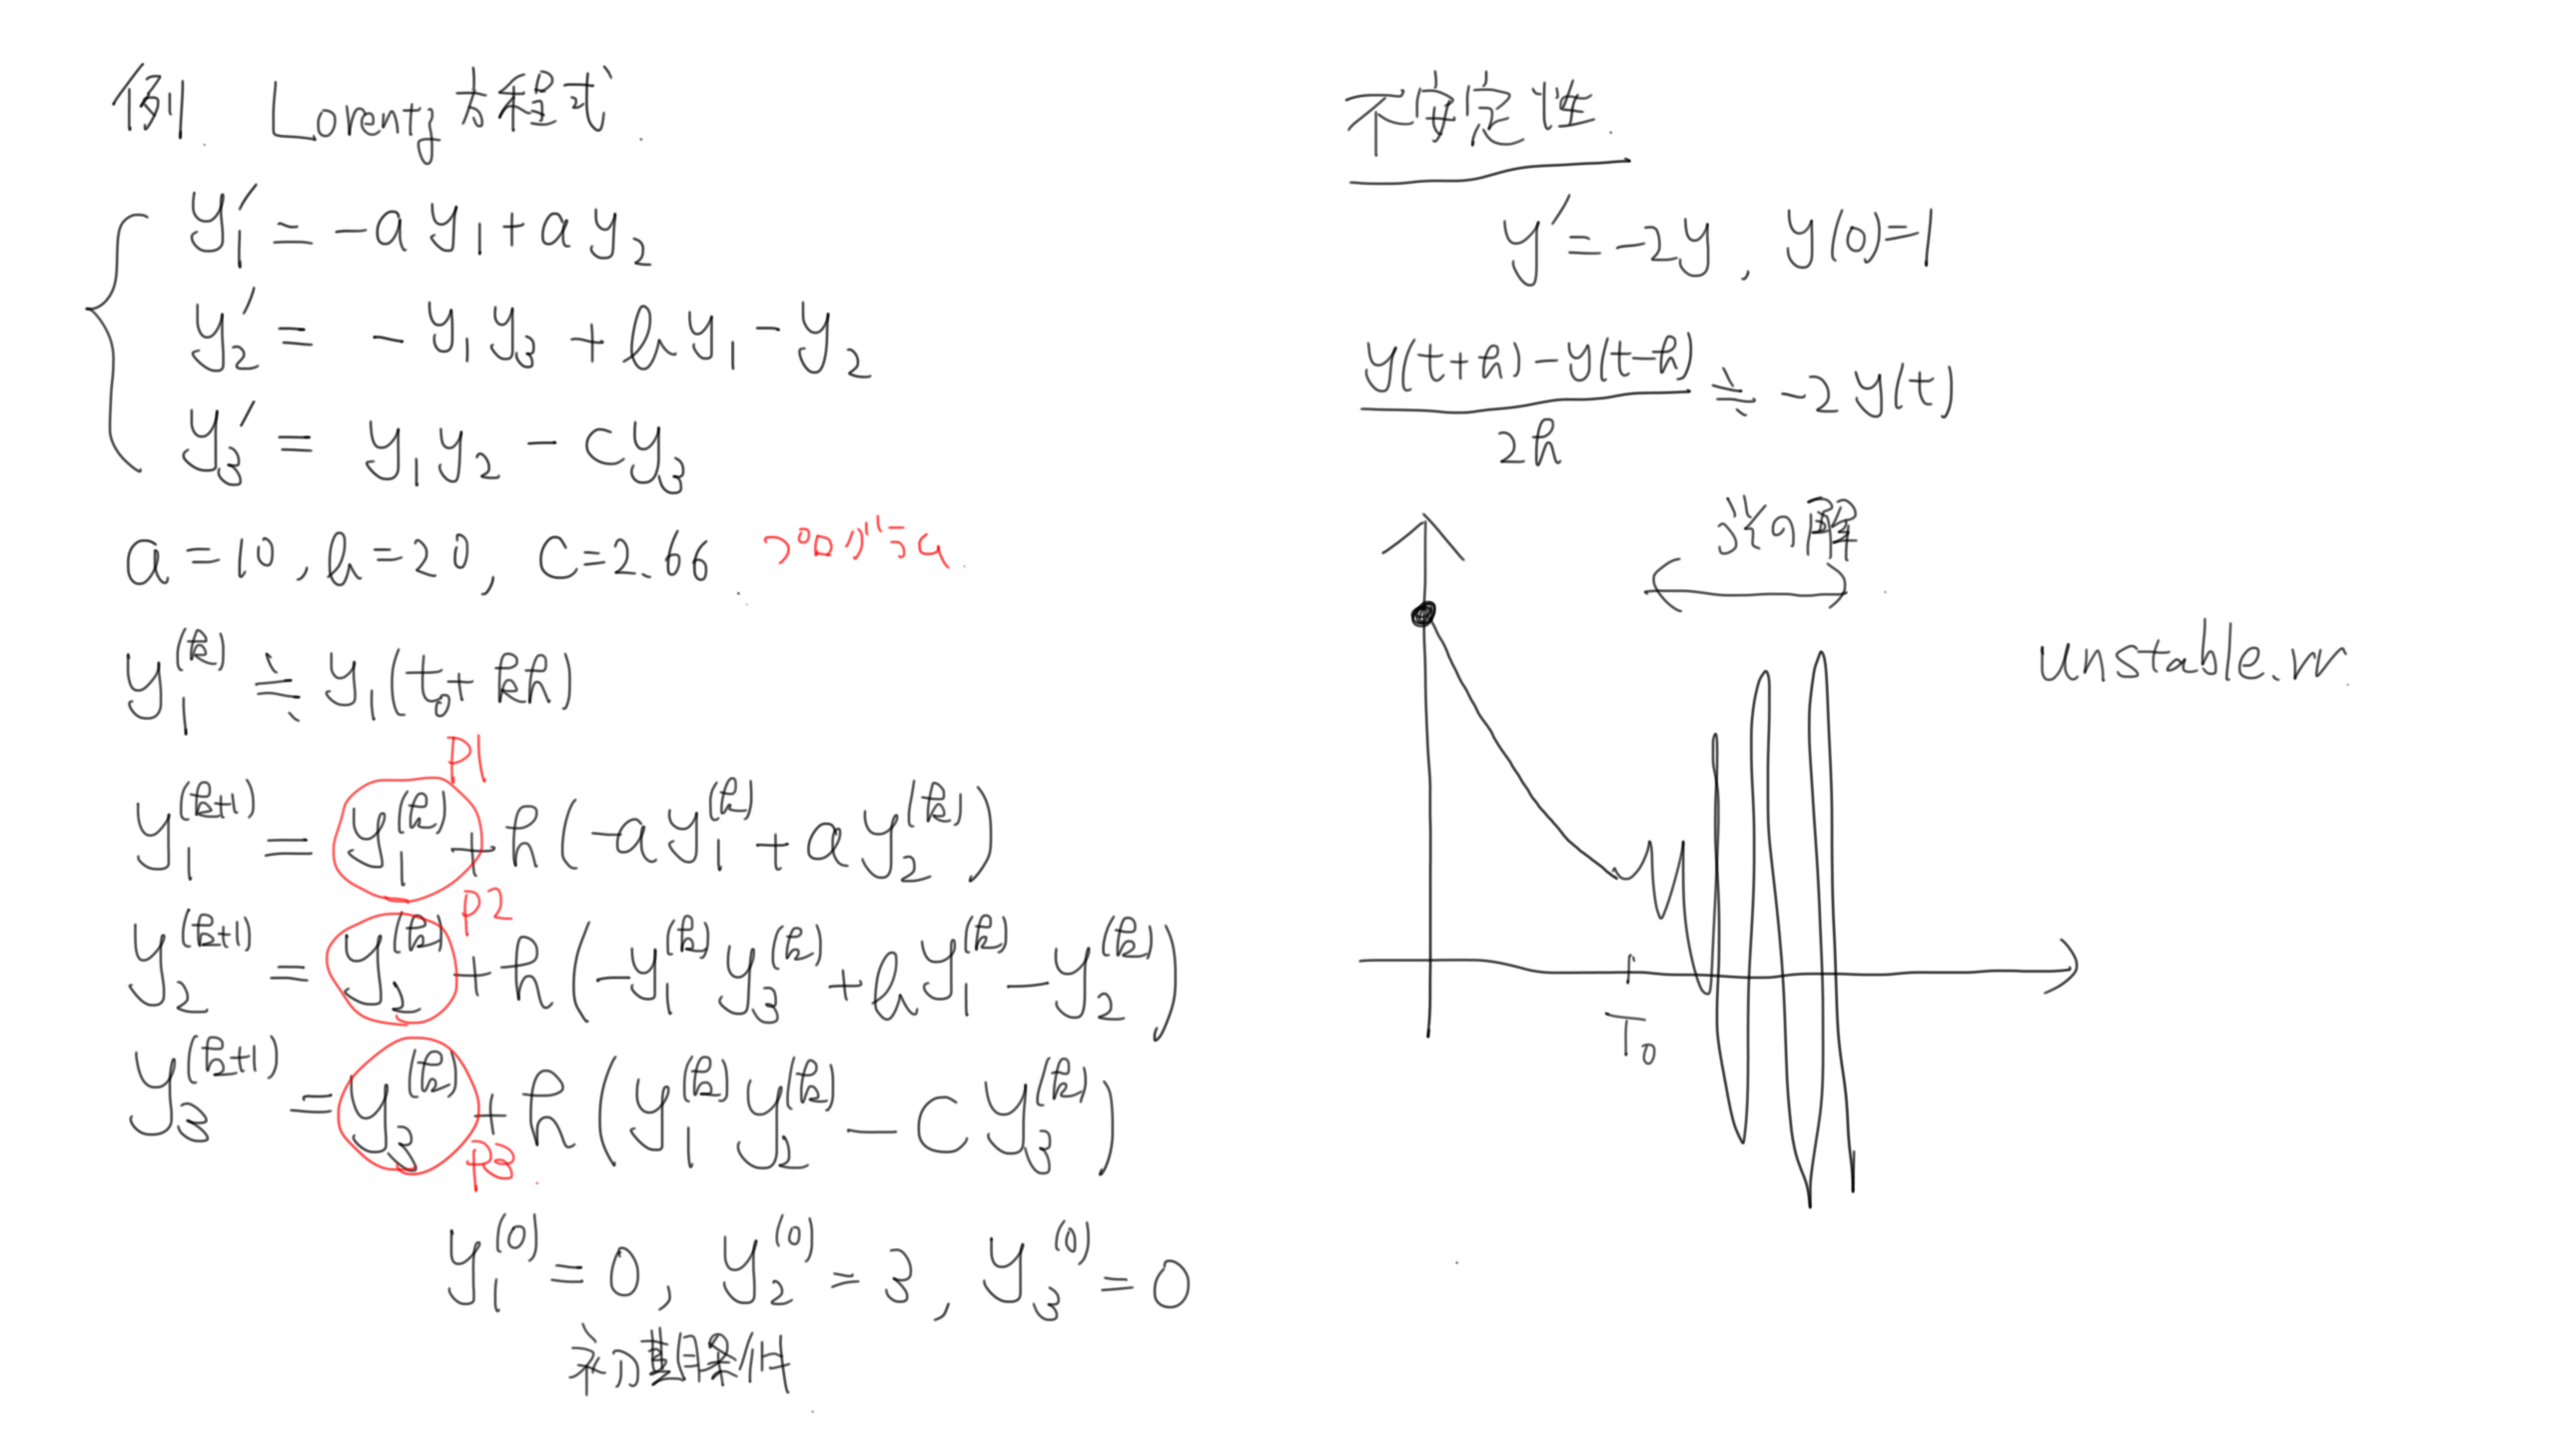 例. Lorentz方程式.
y₁' = -a y₁ + a y₂
y₂' = - y₁ y₃ + b y₁ - y₂
y₃' = y₁ y₂ - c y₃
a = 10, b = 20, c = 2.66. プログラム a.
y₁^(k) ≒ y₁(t₀ + kh)
P1
y₁^(k+1) = y₁^(k) + h(-a y₁^(k) + a y₂^(k))
P2
y₂^(k+1) = y₂^(k) + h(-y₁^(k) y₃^(k) + b y₁^(k) - y₂^(k))
y₃^(k+1) = y₃^(k) + h(y₁^(k) y₂^(k) - c y₃^(k))
P3
y₁^(0) = 0, y₂^(0) = 3, y₃^(0) = 0
初期条件
不安定性.
y' = -2y, y(0) = 1
(y(t+h) - y(t-h)) / 2h ≒ -2 y(t)
の解
unstable.rr
T₀